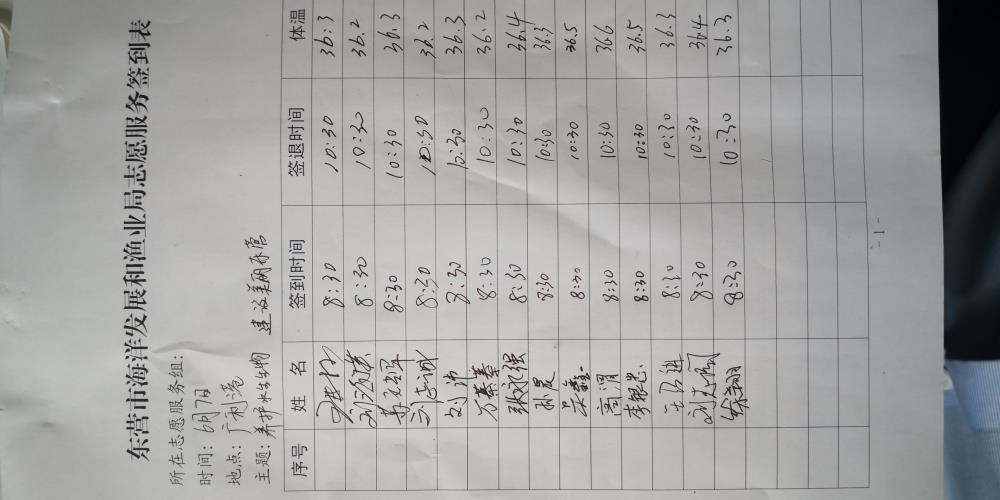 东营市海洋发展和渔业局志愿服务签到表
所在志愿服务组:
时间: 6月7日
地点: 广利港
主题: 养护水生生物 建设美丽东营
序号 姓名 签到时间 签退时间 体温
8:30 10:30 36.3
8:30 10:30 36.2
8:30 10:30 36.3
8:30 10:30 36.2
刘沛 8:30 10:30 36.3
万秦秦 8:30 10:30 36.2
张永强 8:30 10:30 36.4
孙晨 8:30 10:30 36.3
吴鑫 8:30 10:30 36.5
高渭 8:30 10:30 36.6
李银忠 8:30 10:30 36.5
8:30 10:30 36.3
8:30 10:30 36.4
8:30 10:30 36.3
- 1 -